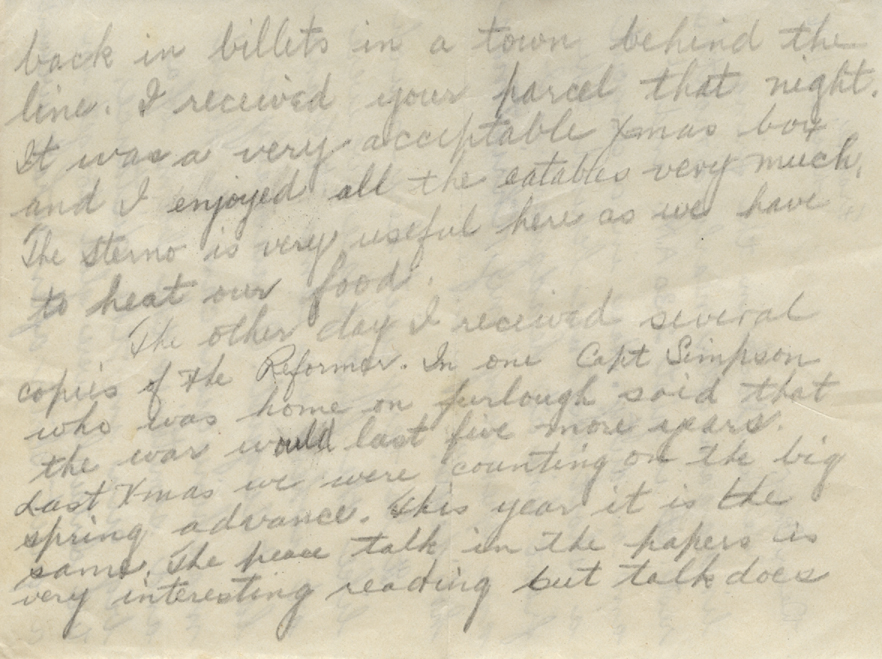 back in billets in a town behind the
line. I received your parcel that night.
It was a very acceptable Xmas box
and I enjoyed all the eatables very much.
The sterno is very useful here as we have
to heat our food.
The other day I received several
copies of the Reformer. In one Capt Simpson
who was home on furlough said that
the war would last five more years.
Last Xmas we were counting on the big
spring advance. This year it is the
same. The peace talk in the papers is
very interesting reading but talk does